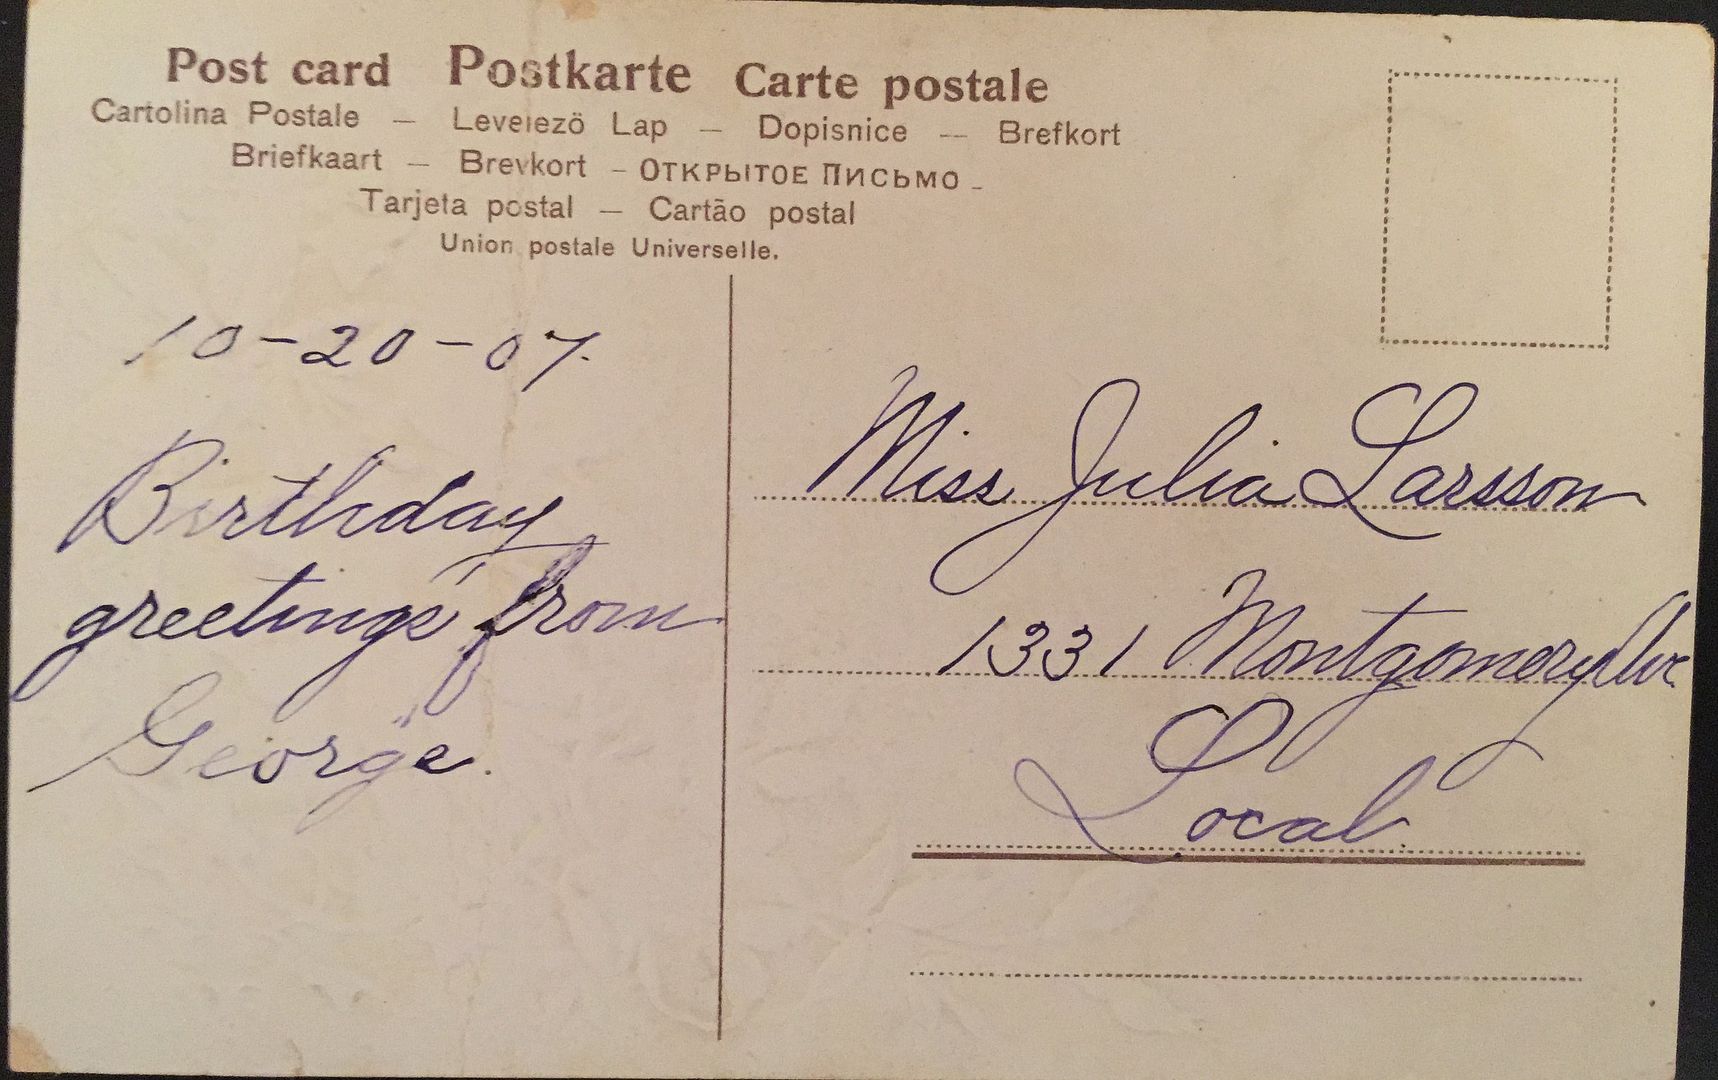 Post card Postkarte Carte postale
Cartolina Postale – Levelezö Lap – Dopisnice – Brefkort
Briefkaart – Brevkort – ОТКРЫТОЕ ПИСЬМО –
Tarjeta postal – Cartão postal
Union postale Universelle.
10-20-07.
Birthday
greetings from
George.
Miss Julia Larsson
1331 Montgomery Ave
Local.